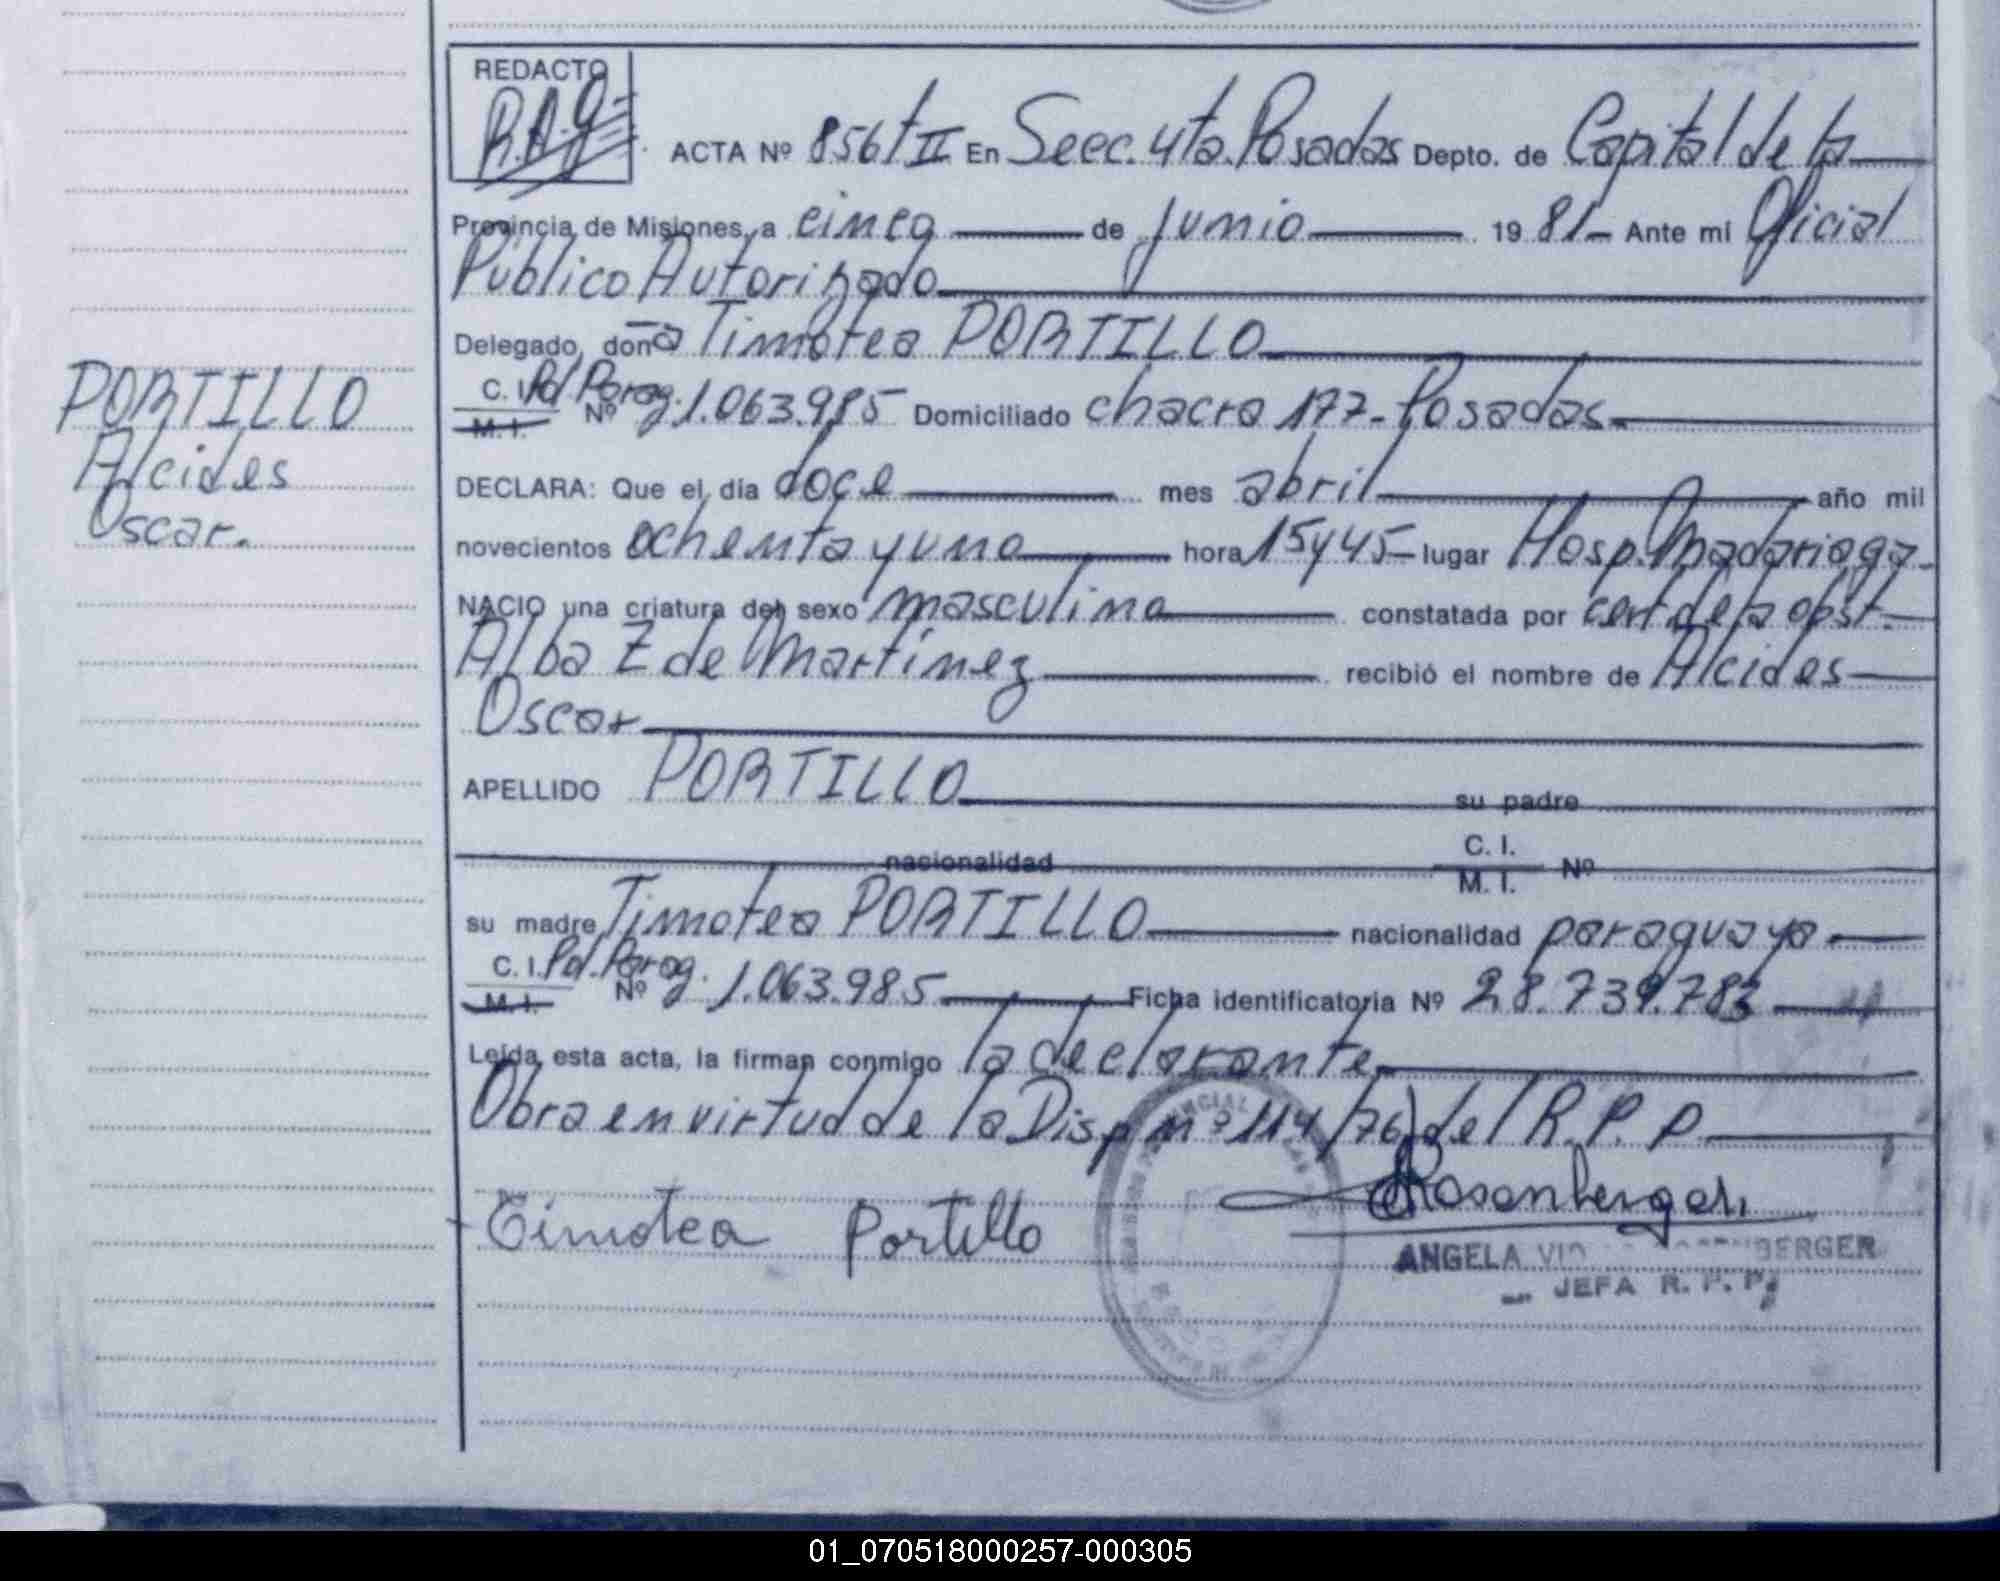 REDACTO
R.A.G
ACTA Nº 856 t II En Secc. 4ta. Posadas Depto. de Capital de la
Provincia de Misiones, a cinco de junio 1981 Ante mi Oficial
Público Autorizado
Delegado, doña Timotea PORTILLO
C. I. Pol. Parag. Nº 1.063.985 Domiciliado chacra 177 - Posadas
M. I.
DECLARA: Que el día doce mes abril año mil
novecientos ochenta y uno hora 15 y 45 lugar Hosp. Madariaga
NACIO una criatura del sexo masculino constatada por cert. de la obst.
Alba Z de Martínez recibió el nombre de Alcides
Oscar
APELLIDO PORTILLO su padre
nacionalidad C. I. Nº
M. I.
su madre Timotea PORTILLO nacionalidad paraguaya
C. I. Pol. Parag. Nº 1.063.985 Ficha identificatoria Nº 28.739.783
M. I.
Leída esta acta, la firman conmigo la declarante
Obra en virtud de la Disp. nº 114/76 del R.P.P
Timotea Portillo
Rosenberger
ANGELA BERGER
JEFA R. P. P.
PORTILLO
Alcides
Oscar.
01_070518000257-000305